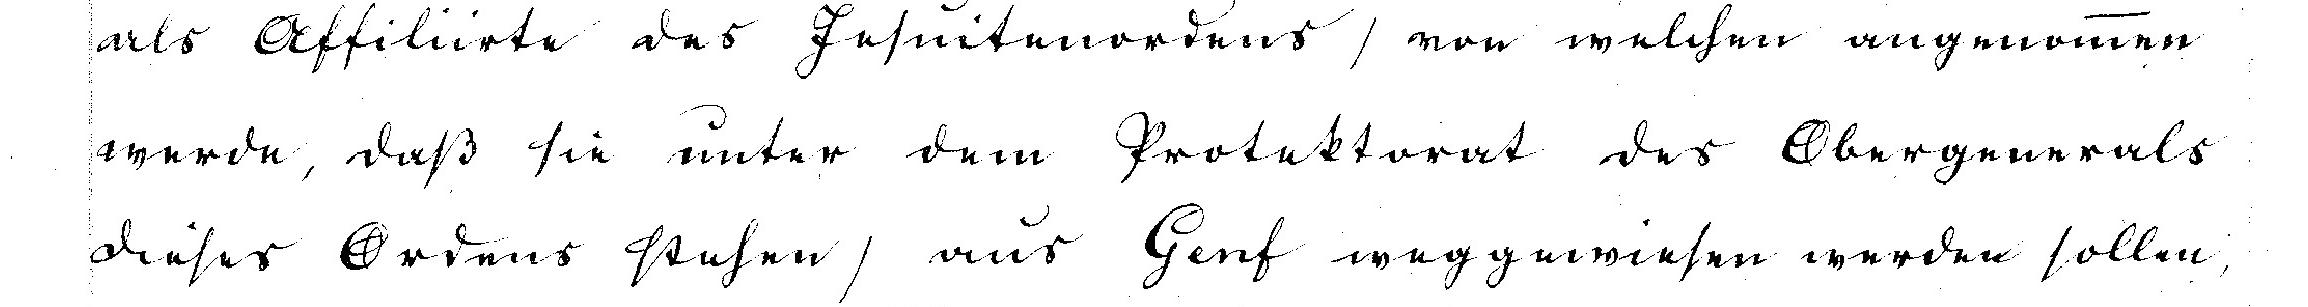 als Affiliirte des Jesuitenordens / von welchen angenom̅en
werde, daß sie unter dem Protektorat des Obergenerals
dieses Ordens stehen / aus Genf weggewiesen werden sollen,